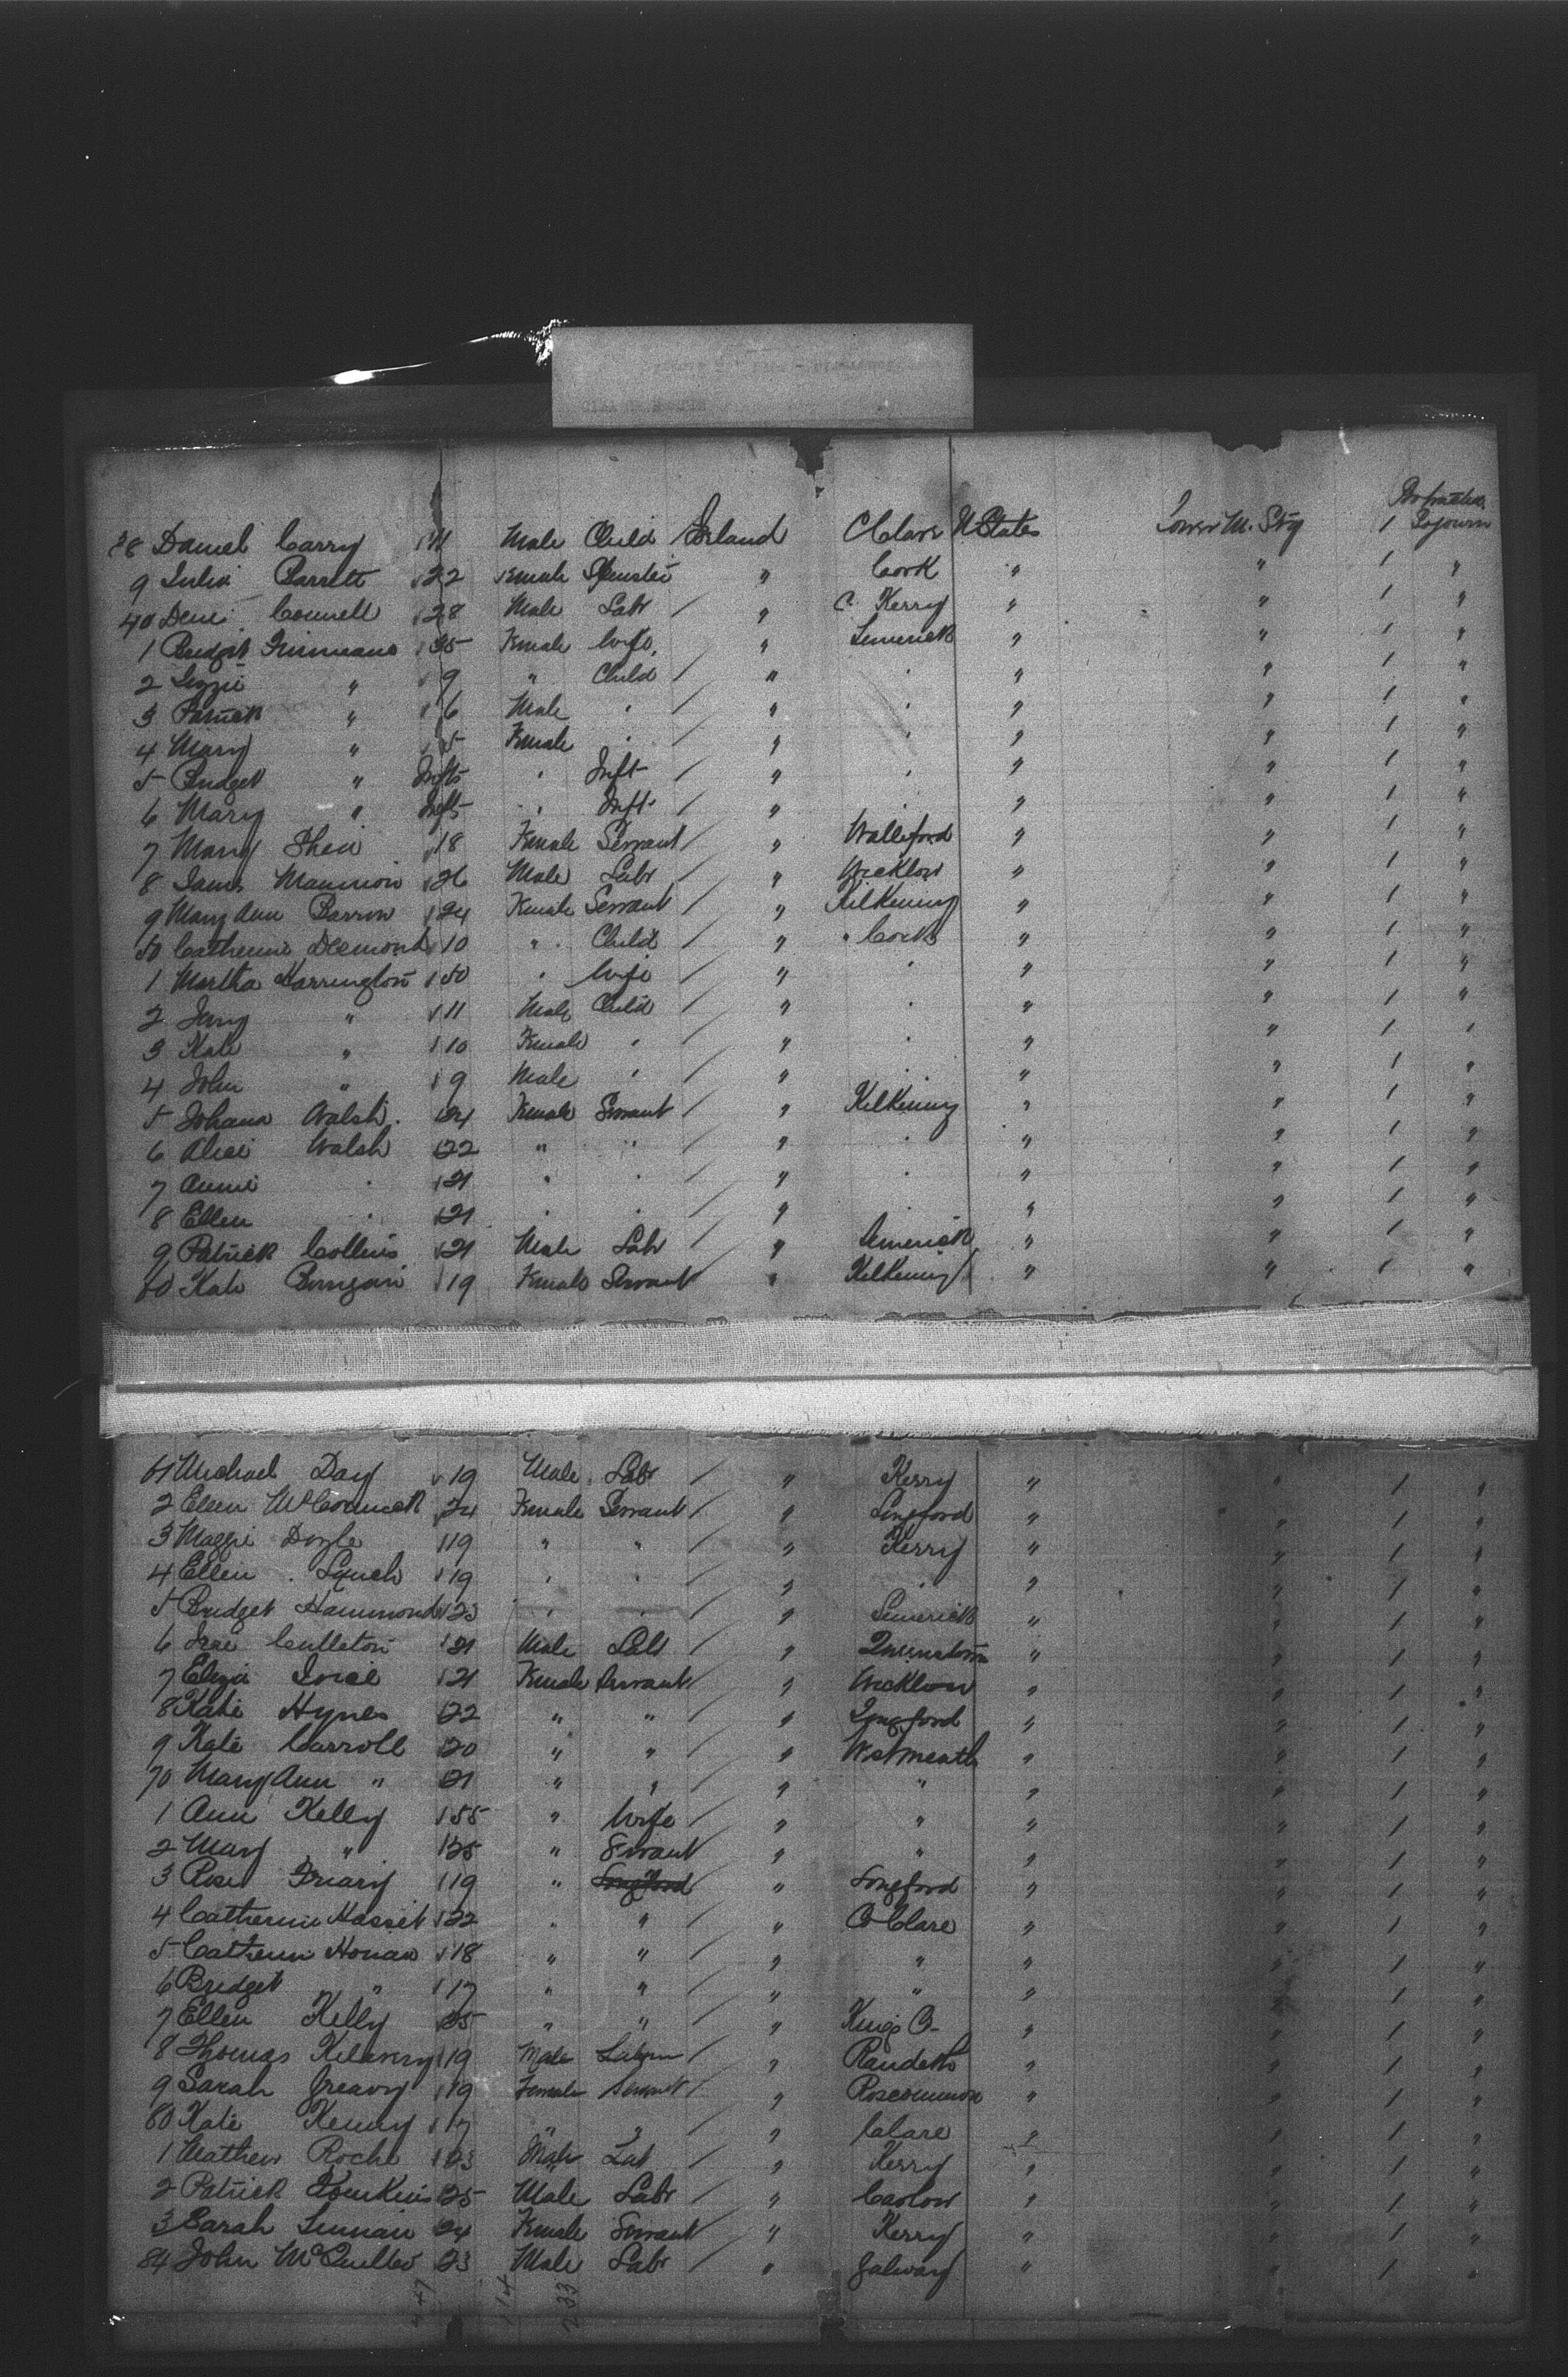 38 Daniel Carry 11 Male Child Ireland C Clare U States Lower M. Stg 1 Protracted Sojourn
9 Julia Barrett 22 Female Spinster " Cork " " 1 "
40 Connell 28 Male Labr / " C. Kerry " " 1 "
1 Bridget 35 Female Wife " Limerick " " 1 "
2 Lizzie " 9 " Child / " " " " 1 "
3 Patrick " 6 Male " / " " " " 1 "
4 Mary " 5 Female " / " " " " 1 "
5 Bridget " Infts " Inft / " " " " 1 "
6 Mary " Infts " Inft / " " " " 1 "
7 Mary Shea 18 Female Servant / " " " 1 "
8 James Mannion 26 Male Labr / " Wicklow " " 1 "
9 Mary Ann Barron 24 Female Servant / " Kilkenny " " 1 "
50 Catherine Desmond 10 " Child / " " Cork " " 1 "
1 Martha Harrington 50 " Wife / " " " " 1 "
2 " 11 Male Child / " " " " 1 "
3 Kate " 10 Female " / " " " " 1 "
4 John " 9 Male " / " " " " 1 "
5 Johana Walsh 24 Female Servant / " Kilkenny " " 1 "
6 Alice Walsh 22 " " / " " " " 1 "
7 Annie " 21 " " / " " " " 1 "
8 Ellen " 21 " " / " " " " 1 "
9 Patrick Collins 21 Male Labr / " Limerick " " 1 "
60 Kate 19 Female Servant " Kilkenny " " 1 "
61 Michael Day 19 Male Labr / " Kerry " " 1 "
2 Ellen McCormick 24 Female Servant / " Longford " " 1 "
3 Maggie Doyle 19 " " / " Kerry " " 1 "
4 Ellen Lynch 19 " " / " " " " 1 "
5 Bridget Hammond 23 " " / " Limerick " " 1 "
6 Culleton 21 Male Labr / " Queenstown " " 1 "
7 Eliza 21 Female Servant / " Wicklow " " 1 "
8 Katie Hynes 22 " " / " Longford " " 1 "
9 Kate Carroll 20 " " / " Westmeath " " 1 "
70 Mary Ann " 21 " " / " " " " 1 "
1 Ann Kelly 55 " Wife / " " " " 1 "
2 Mary " 25 " Servant / " " " " 1 "
3 Rose Friary 19 " Longford " Longford " " 1 "
4 Catherine Hasset 22 " " / " Co Clare " " 1 "
5 Catherine Honan 18 " " / " " " " 1 "
6 Bridget " 17 " " / " " " " 1 "
7 Ellen Kelly 25 " " / " Kings Co " " 1 "
8 Thomas 19 Male / " " " 1 "
9 Sarah Greavy 19 Female Servant / " Roscommon " " 1 "
80 Kate Kenny 17 " " / " Clare " " 1 "
1 Mathew Roche 23 Male Lab / " Kerry " " 1 "
2 Patrick Tomkins 25 Male Labr / " Carlow " " 1 "
3 Sarah 24 Female Servant / " Kerry " " 1 "
84 John 23 Male Labr / " Galway " " 1 "
114 233